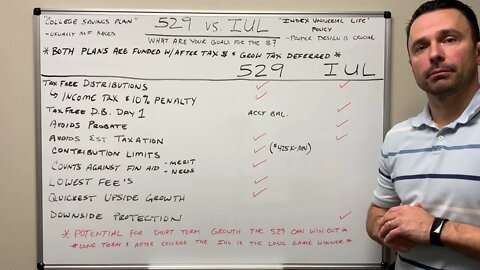 "College Savings Plan"
- Usually MF Based
529 vs. IUL
"Index Universal Life"
Policy
- Proper Design is Crucial
What are your goals for the $?
* Both Plans are funded w/ After Tax $ & Grow Tax Deferred *
529 IUL
Tax Free Distributions ✓ ✓
↳ Income Tax & 10% Penalty ✓
Tax Free D.B. Day 1 Acct Bal. ✓
Avoids Probate ✓
Avoids Est Taxation ✓ ✓
Contribution Limits ✓ ($425K-MN)
Counts Against Fin Aid - Merit ✓
- Needs ✓
Lowest Fee's ✓
Quickest Upside Growth ✓
Downside Protection ✓
* Potential for short term growth the 529 can win out *
* Long term & after college the IUL is the long game winner *